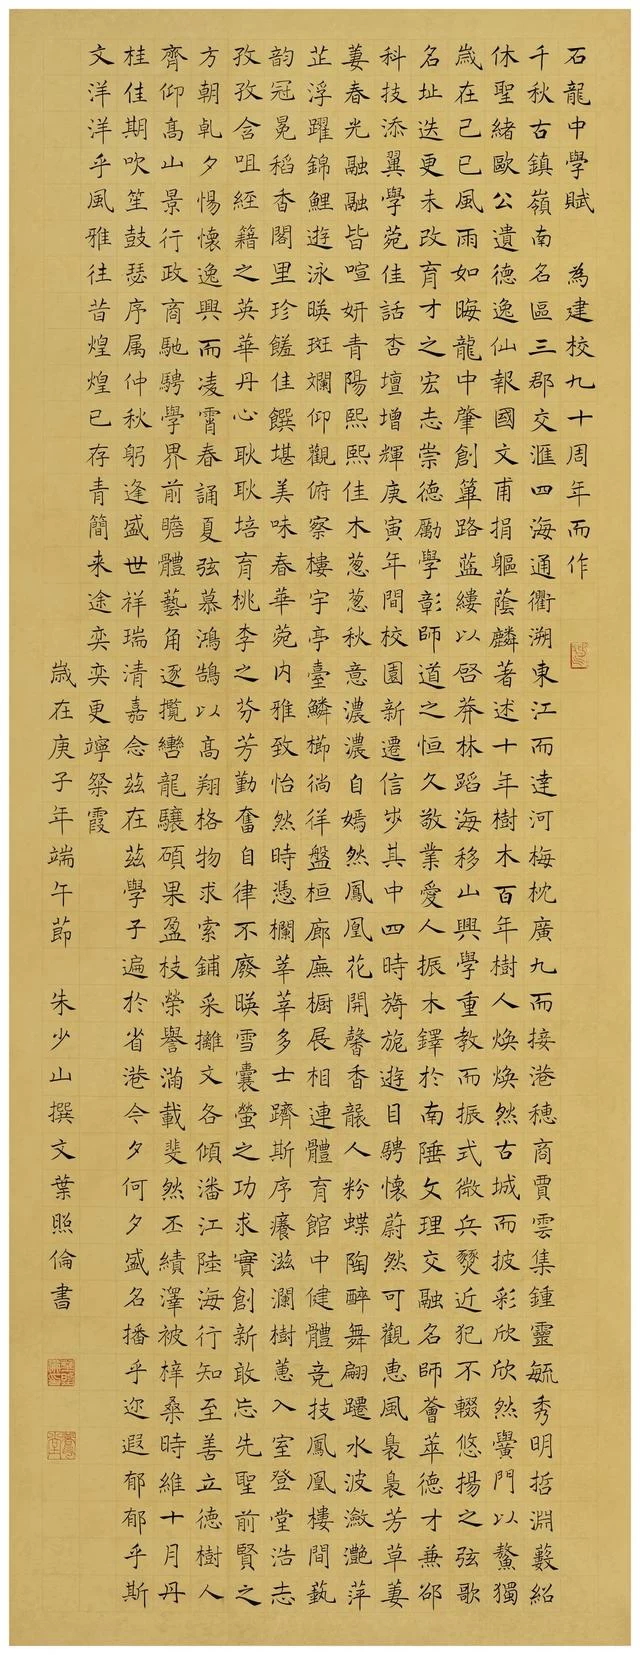 石龍中學賦 為建校九十周年而作
千秋古鎮嶺南名區三郡交滙四海通衢溯東江而達河梅枕廣九而接港穗商賈雲集鍾靈毓秀明哲淵藪紹
休聖緒歐公遺德逸仙報國文甫捐軀蔭麟著述十年樹木百年樹人煥煥然古城而披彩欣欣然黌門以鰲獨
歲在己巳風雨如晦龍中肇創篳路蓝縷以啓莽林蹈海移山興學重教而振式微兵燹近犯不輟悠揚之弦歌
名址迭更未改育才之宏志崇德勵學彰師道之恒久敬業愛人振木鐸於南陲文理交融名師薈萃德才兼邵
科技添翼學苑佳話杏壇增輝庚寅年間校園新遷信步其中四時旖旎遊目騁懷蔚然可觀惠風裊裊芳草萋
萋春光融融皆喧妍青陽熙熙佳木葱葱秋意濃濃自嫣然鳳凰花開馨香襲人粉蝶陶醉舞翩躚水波瀲灧萍
芷浮躍錦鯉遊泳暎斑斕仰觀俯察樓宇亭臺鱗櫛徜徉盤桓廊廡櫥展相連體育館中健體竞技鳳凰樓間藝
韵冠冕稻香閣里珍饈佳饌堪美味春華菀内雅致怡然時憑欄莘莘多士躋斯序癢滋瀾樹蕙入室登堂浩志
孜孜含咀經籍之英華丹心耿耿培育桃李之芬芳勤奮自律不廢暎雪囊螢之功求實創新敢忘先聖前賢之
方朝乹夕惕懷逸興而凌霄春誦夏弦慕鴻鵠以高翔格物求索鋪采摛文各傾潘江陸海行知至善立德樹人
齊仰高山景行政商馳騁學界前瞻體藝角逐攬轡龍驤碩果盈枝榮譽滿載斐然丕績澤被梓桑時維十月丹
桂佳期吹笙鼓瑟序属仲秋躬逢盛世祥瑞清嘉念茲在茲學子遍於省港今夕何夕盛名播乎迩遐郁郁乎斯
文洋洋乎風雅往昔煌煌已存青簡来途奕奕更竫粲霞
歲在庚子年端午節 朱少山撰文葉照倫書